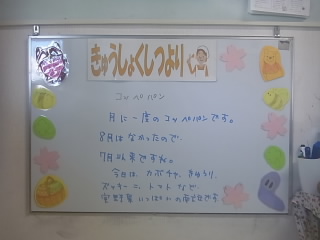 きゅうしょくしつより
コッペパン
月に一度のコッペパンです。
8月はなかったので
7月以来ですね。
今日は、カボチャ、きゅうり、
ズッキーニ、トマトなど
夏野菜いっぱいの献立です。